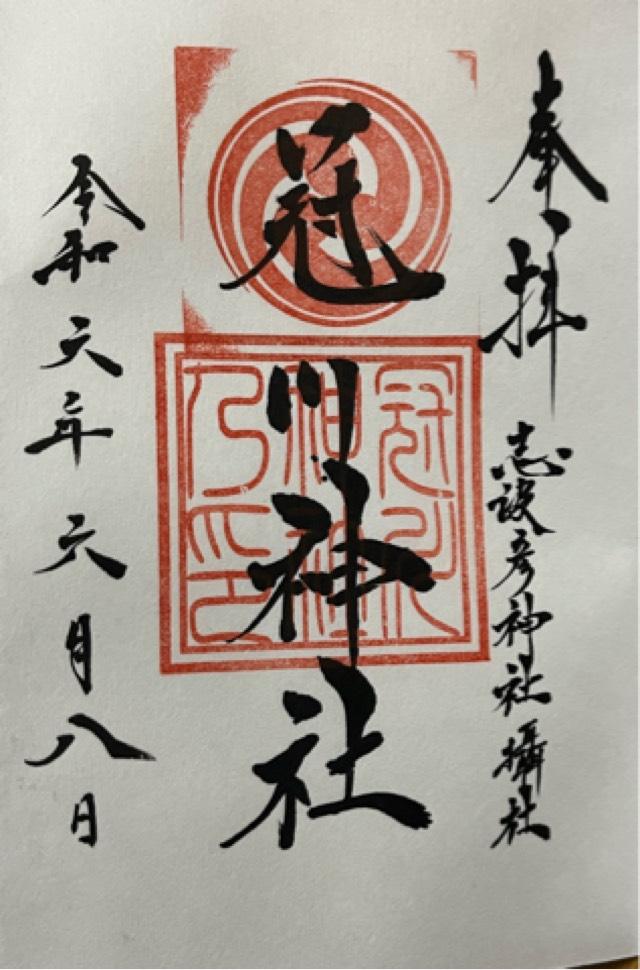 奉拝
志波彦神社攝社
冠川神社
冠川神社之印
令和六年六月八日